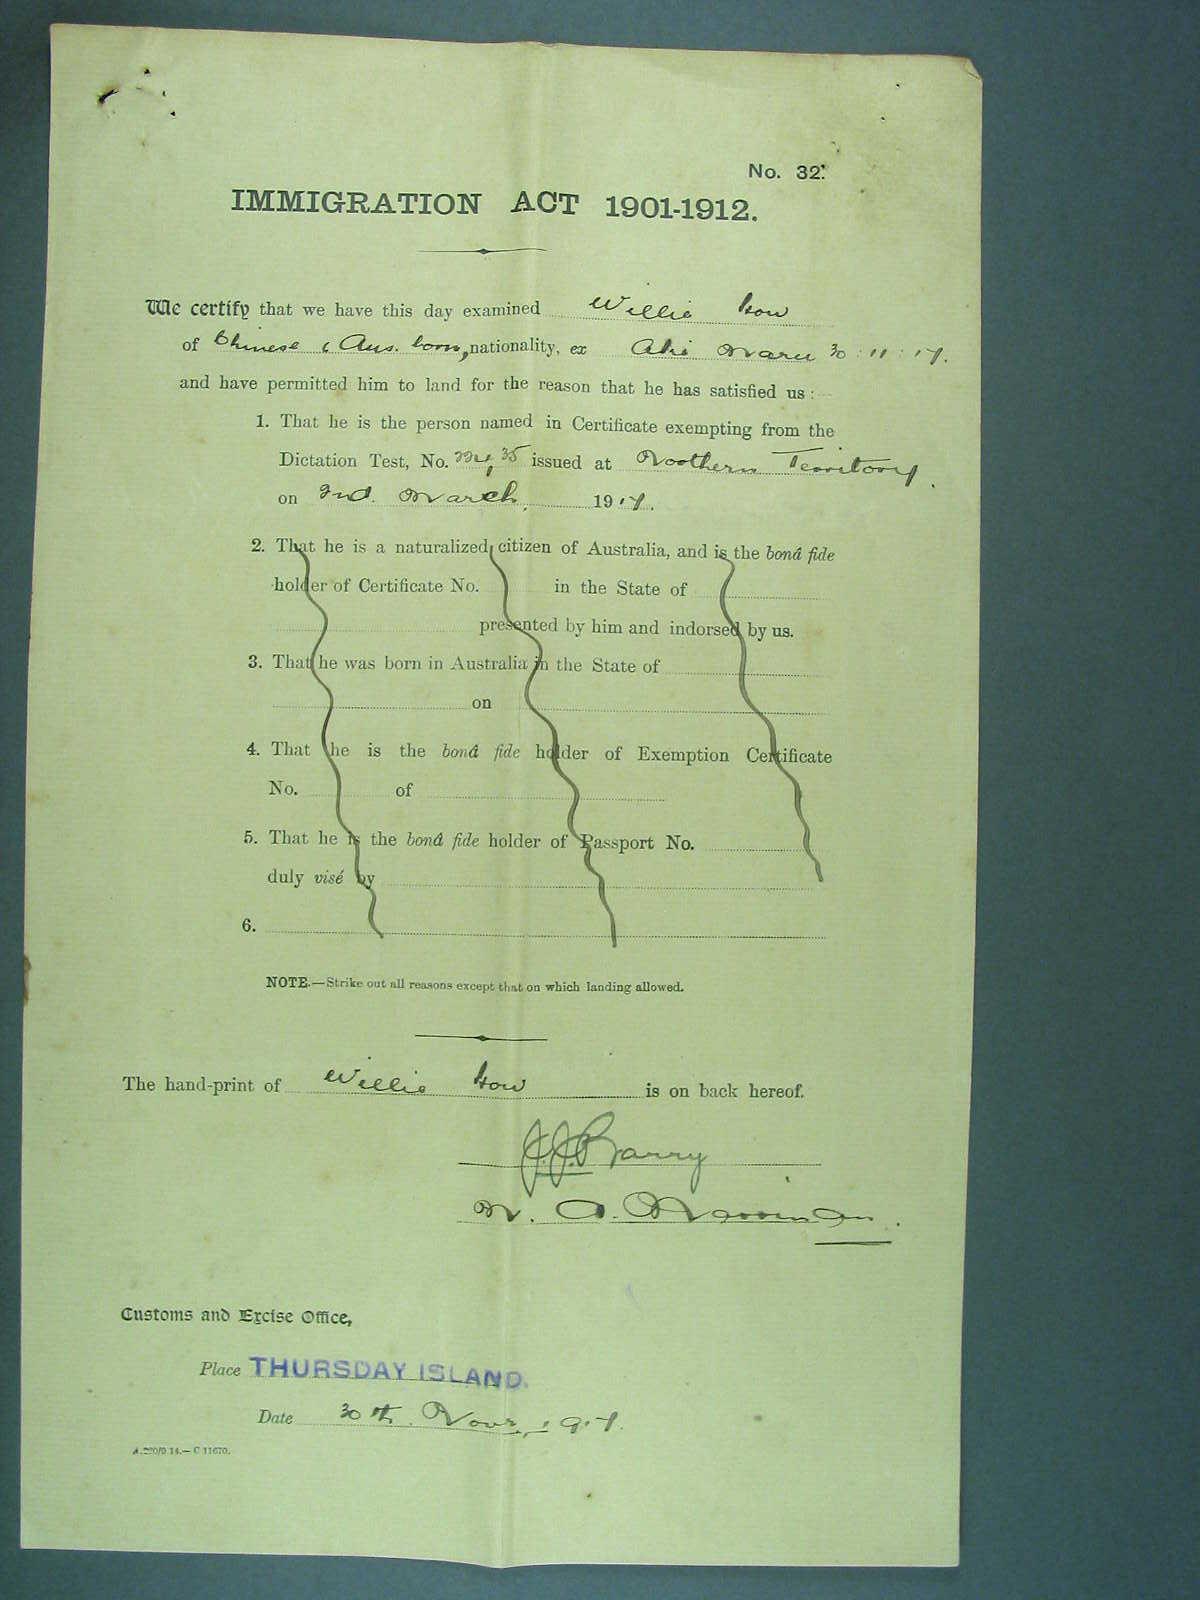 No. 32.
IMMIGRATION ACT 1901-1912.
We certify that we have this day examined Willie How
of Chinese (Aus. born, nationality, ex Aki Maru 30:11:17.
and have permitted him to land for the reason that he has satisfied us:
1. That he is the person named in Certificate exempting from the
Dictation Test, No. 35 issued at Northern Territory.
on 2nd. March, 1917.
2. That he is a naturalized citizen of Australia, and is the bonâ fide
holder of Certificate No. in the State of
presented by him and indorsed by us.
3. That he was born in Australia in the State of
on
4. That he is the bonâ fide holder of Exemption Certificate
No. of
5. That he is the bonâ fide holder of Passport No.
duly visé by
6.
NOTE.—Strike out all reasons except that on which landing allowed.
The hand-print of Willie How is on back hereof.
J.J. Barry
Customs and Excise Office,
Place THURSDAY ISLAND.
Date 30th. Novr, 1917.